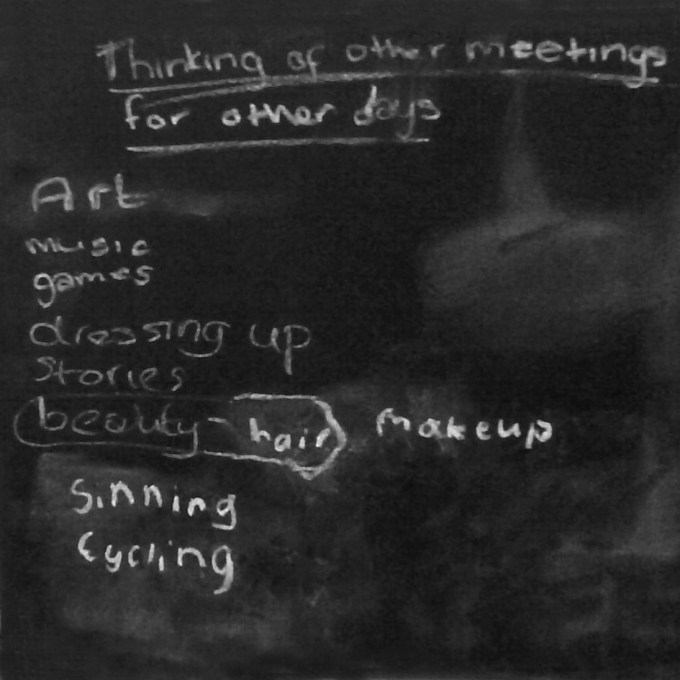 Thinking of other meetings
for other days
Art
music
games
dressing up
stories
beauty - hair makeup
Sinning
Cycling